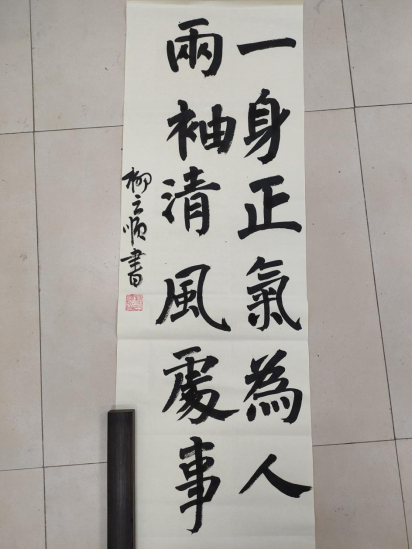 一身正氣為人
兩袖清風處事
柳云順書